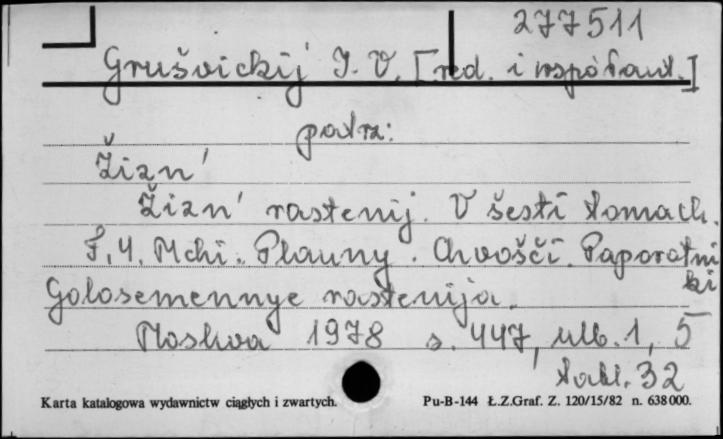 277511
Grušvickij I. V. [red. i współaut.]
patrz:
Žizn'
Žizn' rastenij. V šesti tomach.
T. 4. Mchi. Plauny. Chvošči. Paporotni
ki
Golosemennye rastenija.
Moskva 1978 s. 447, ulb. 1, 5
tabl. 32
Karta katalogowa wydawnictw ciągłych i zwartych.
Pu-B-144 Ł.Z.Graf. Z. 120/15/82 n. 638000.